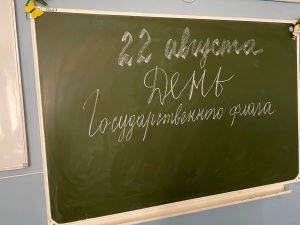 22 августа
День
Государственного флага